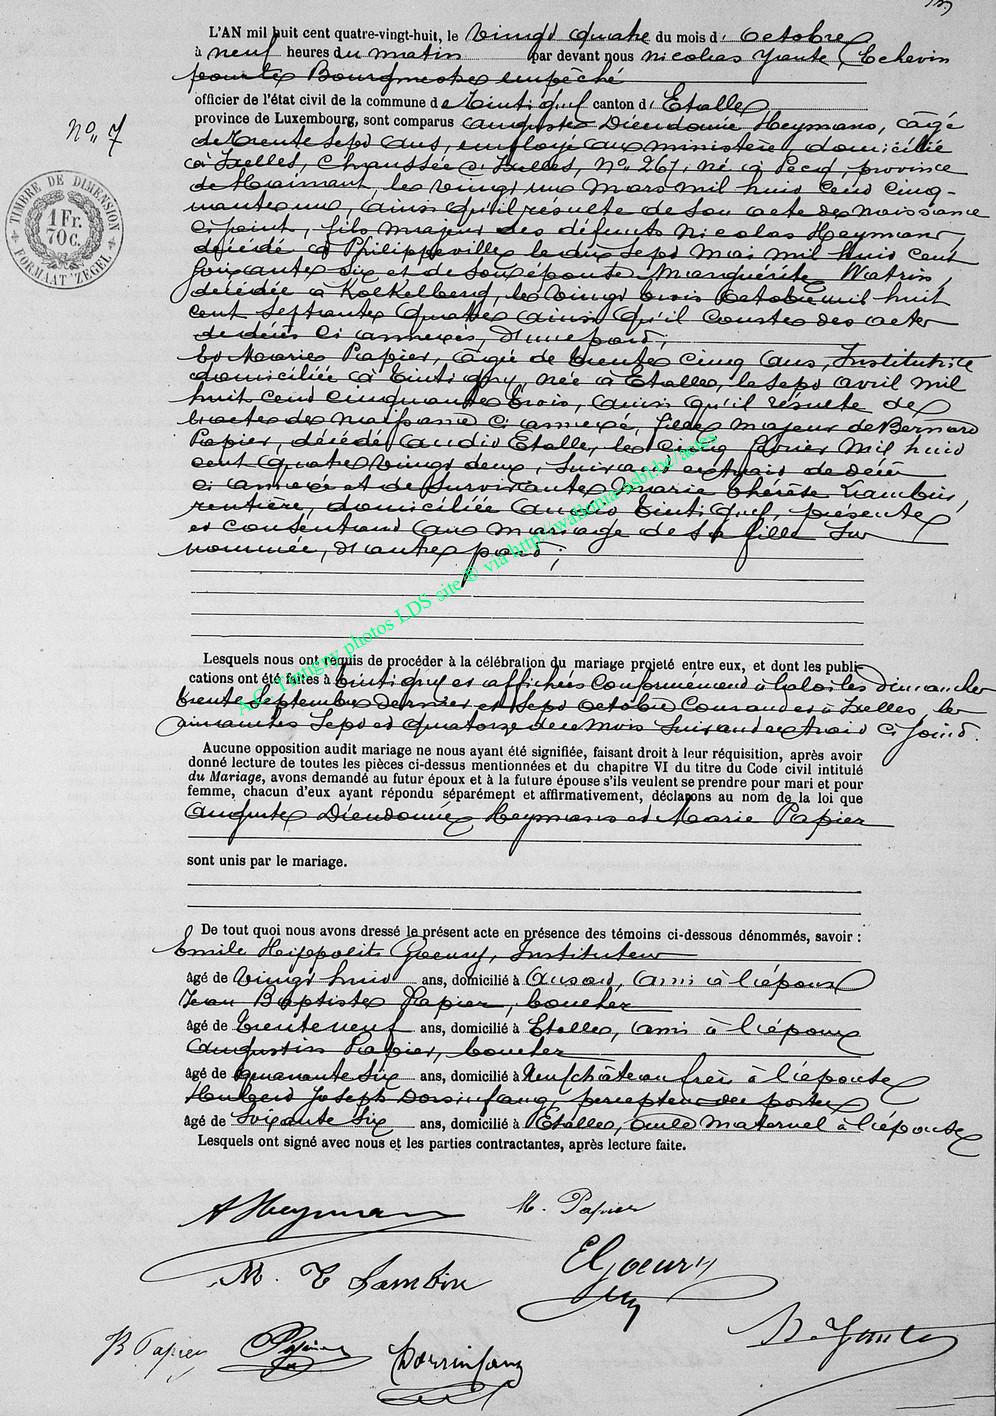 L'AN mil huit cent quatre-vingt-huit, le vingt quatre du mois d' octobre
à neuf heures du matin par devant nous Nicolas Yante, Echevin
pour le Bourgmestre empêché
officier de l'état civil de la commune de Tintigny canton d' Etalle
province de Luxembourg, sont comparus Auguste Dieudonné Heymans, âgé
N° 7
de trente sept ans, employé au ministère, domicilié
à Ixelles, Chaussée d'Ixelles, N° 267, né à Pecq, province
de Hainaut, le vingt un mars mil huit cent cinq-
uante un, ainsi qu'il résulte de son acte de naissance
ci joint, fils majeur des défunts Nicolas Heymans,
décédé à Philippeville le dix sept mai mil huit cent
soixante six et de son épouse Marguerite Watrin,
décédée à Koekelberg, le vingt trois octobre mil huit
cent septante quatre ainsi qu'il conste des actes
de décès ci annexés, d'une part;
Et Marie Papier, âgée de trente cinq ans, Institutrice
domiciliée à Tintigny, née à Etalle, le sept avril mil
huit cent cinquante trois, ainsi qu'il résulte de
l'acte de naissance ci annexé, fille majeur de Bernard
Papier, décédé audit Etalle, le cinq février mil huit
cent quatre vingt deux, suivant extrait de décès
ci annexé et de survivante Marie Thérèse Lambin,
rentière, domiciliée audit Tintigny, présente
et consentant au mariage de sa fille sus
nommée, d'autre part;
TIMBRE DE DIMENSION
1 Fr.
70 c.
FORMAAT ZEGEL
A.C. Tintigny photos LDS site © via http://wallonia-asbl.be/actes
Lesquels nous ont requis de procéder à la célébration du mariage projeté entre eux, et dont les publi-
cations ont été faites à Tintigny et affichées conformément à la loi les dimanches
trente septembre dernier et sept octobre courant et à Ixelles, les
dimanches sept et quatorze de ce mois suivant extrait ci joint.
Aucune opposition audit mariage ne nous ayant été signifiée, faisant droit à leur réquisition, après avoir
donné lecture de toutes les pièces ci-dessus mentionnées et du chapitre VI du titre du Code civil intitulé
du Mariage, avons demandé au futur époux et à la future épouse s'ils veulent se prendre pour mari et pour
femme, chacun d'eux ayant répondu séparément et affirmativement, déclarons au nom de la loi que
Auguste Dieudonné Heymans et Marie Papier
sont unis par le mariage.
De tout quoi nous avons dressé le présent acte en présence des témoins ci-dessous dénommés, savoir :
Emile Hippolite Goeury, Instituteur
âgé de vingt huit ans, domicilié à Ansart, ami à l'époux
Jean Baptiste Papier, boucher
âgé de trente neuf ans, domicilié à Etalle, ami à l'époux
Augustin Papier, boucher
âgé de quarante six ans, domicilié à Neufchâteau frère à l'épouse
Hubert Joseph Dorsinfang, percepteur des postes
âgé de soixante six ans, domicilié à Etalle, oncle maternel à l'épouse
Lesquels ont signé avec nous et les parties contractantes, après lecture faite.
A Heymans
M. Papier
M. T Lambin
E Goeury
N. Yante
B Papier
Papier
Dorsinfang